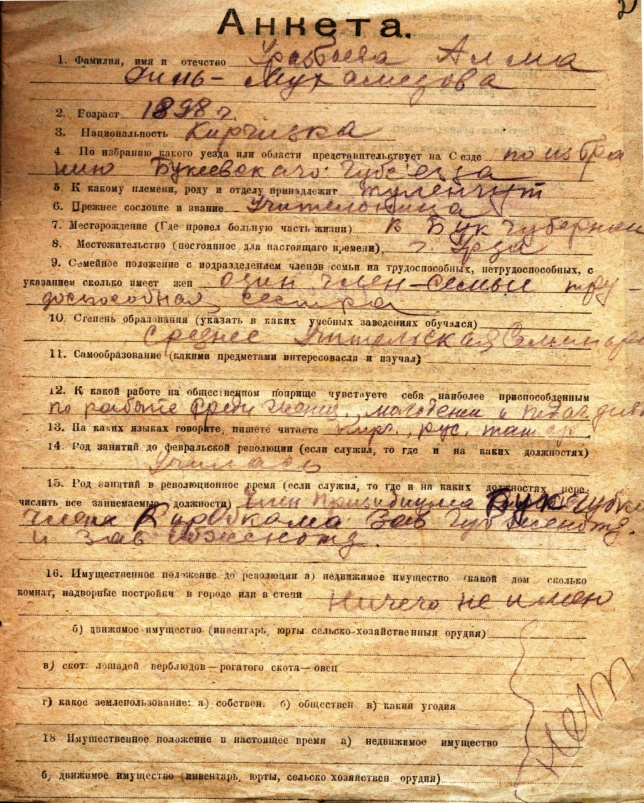 2
Анкета.
1. Фамилия, имя и отечество Уразбаева Алма
Динь-Мухамедова
2. Возраст 1898 г.
3. Национальность Киргизка
4. По избранию какого уезда или области представительствует на С'езде по избра
нию Букеевского Губс'езда
5. К какому племени, роду и отделу принадлежит туленгут
6. Прежнее сословие и звание Учительница
7. Месторождение (Где провел больную часть жизни) в Бук губернии
8. Местожительство (постоянное для настоящего времени) г. Урда
9. Семейное положение с иодразделением членов семьи на трудоспособных, нетрудоспособных, с
указанием сколько имеет жен один член-семьи тру-
доспособная сестра
10. Степень образования (указать в каких учебных заведениях обучался)
Среднее Учительская Семинария
11. Самообразование (какими предметами интересовался и взучал)
12. К какой работе на общественном поприще чувствуете себя наиболее приспособленным
по работе среди женщ, молодежи и
13. На каких языках говорите, пишете читаете Кирг., рус, татар
14. Род занятий до февральской революции (если служил, то где и на каких должностях)
Училась
15. Род занятий в революционное время (если служил, то где и на каких должностях пере-
числить все занимаемые должности) Член Призидиума Бук Губко
член Киробкома Зав Губженотд.
и Зав Обженотд.
16. Имущественное положение до революции а) недвижимое имущество (какой дом сколько
комнат, надворные постройки в городе или в степи Ничего не имел
б) движимое имущество (инвентарь, юрты сельско-хозяйственныя орудия)
в) скот: лошадей верблюдов—рогатого скота—овец
г) какое землепользование: а) собствен. б) обществен в) какий угодия
нет
18 Имущественное положение в настоящее время а) недвижимое имущество
б) движимое имущество (инвентарь, юрты, сельско хозяйствен орудия)